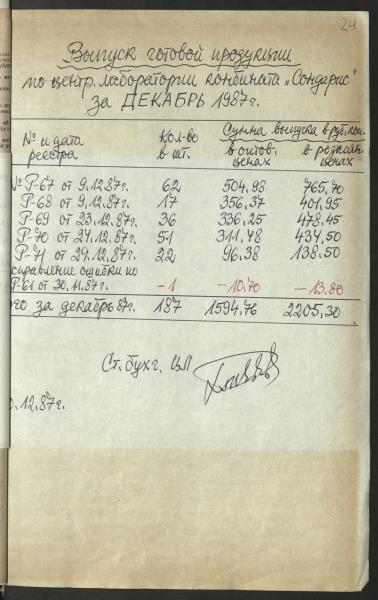 24
Выпуск готовой продукции
по центр. лаборатории комбината „Сондарис"
за ДЕКАБРЬ 1987г.
№ и дата реестра Кол-во в шт. Сумма выпуска в руб, коп.
в оптов. ценах в розничн. ценах
№ Р-67 от 9.12.87г. 62 504,98 765,70
Р-68 от 9.12.87г. 17 356,37 401,95
Р-69 от 23.12.87г. 36 336,25 478,45
Р-70 от 27.12.87г. 51 311,48 434,50
Р-71 от 29.12.87г. 22 96,38 138.50
справление ошибки по
Р-61 от 30.11.87г. -1 -10.70 -13.80
го за декабрь 87г. 187 1594.76 2205,30
Ст. бухг. ЦЛ
.12.87г.